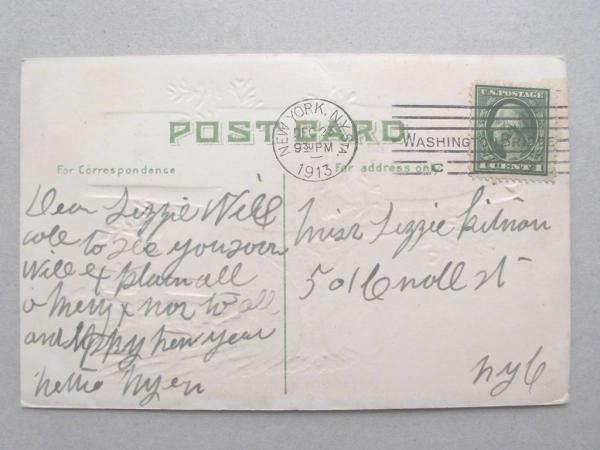 POST CARD
NEW YORK, N.Y. STA
DEC 23
9 30 PM
1913
WASHINGTON BRIDGE
U.S. POSTAGE
1 CENT 1
For Correspondence
For address only
Dear Lizzie Will
call to see you soon
Will explain all
a Merry x mas to all
and Happy new year
Miss Lizzie
501 6 st
nyC